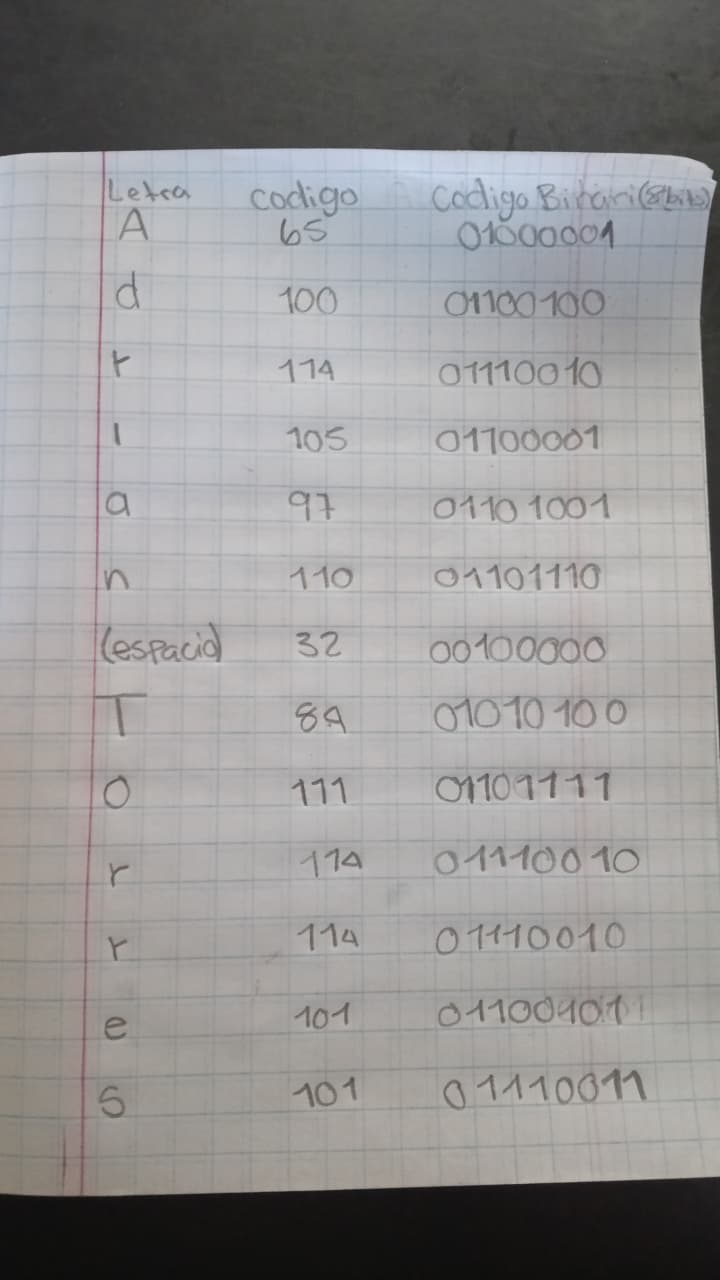 Letra codigo Codigo Binari (8bits)
A 65 01000001
d 100 01100100
r 114 01110010
i 105 01100001
a 97 01101001
n 110 01101110
(espacio) 32 00100000
T 84 01010100
o 111 01101111
r 114 01110010
r 114 01110010
e 101 01100101
s 101 01110011